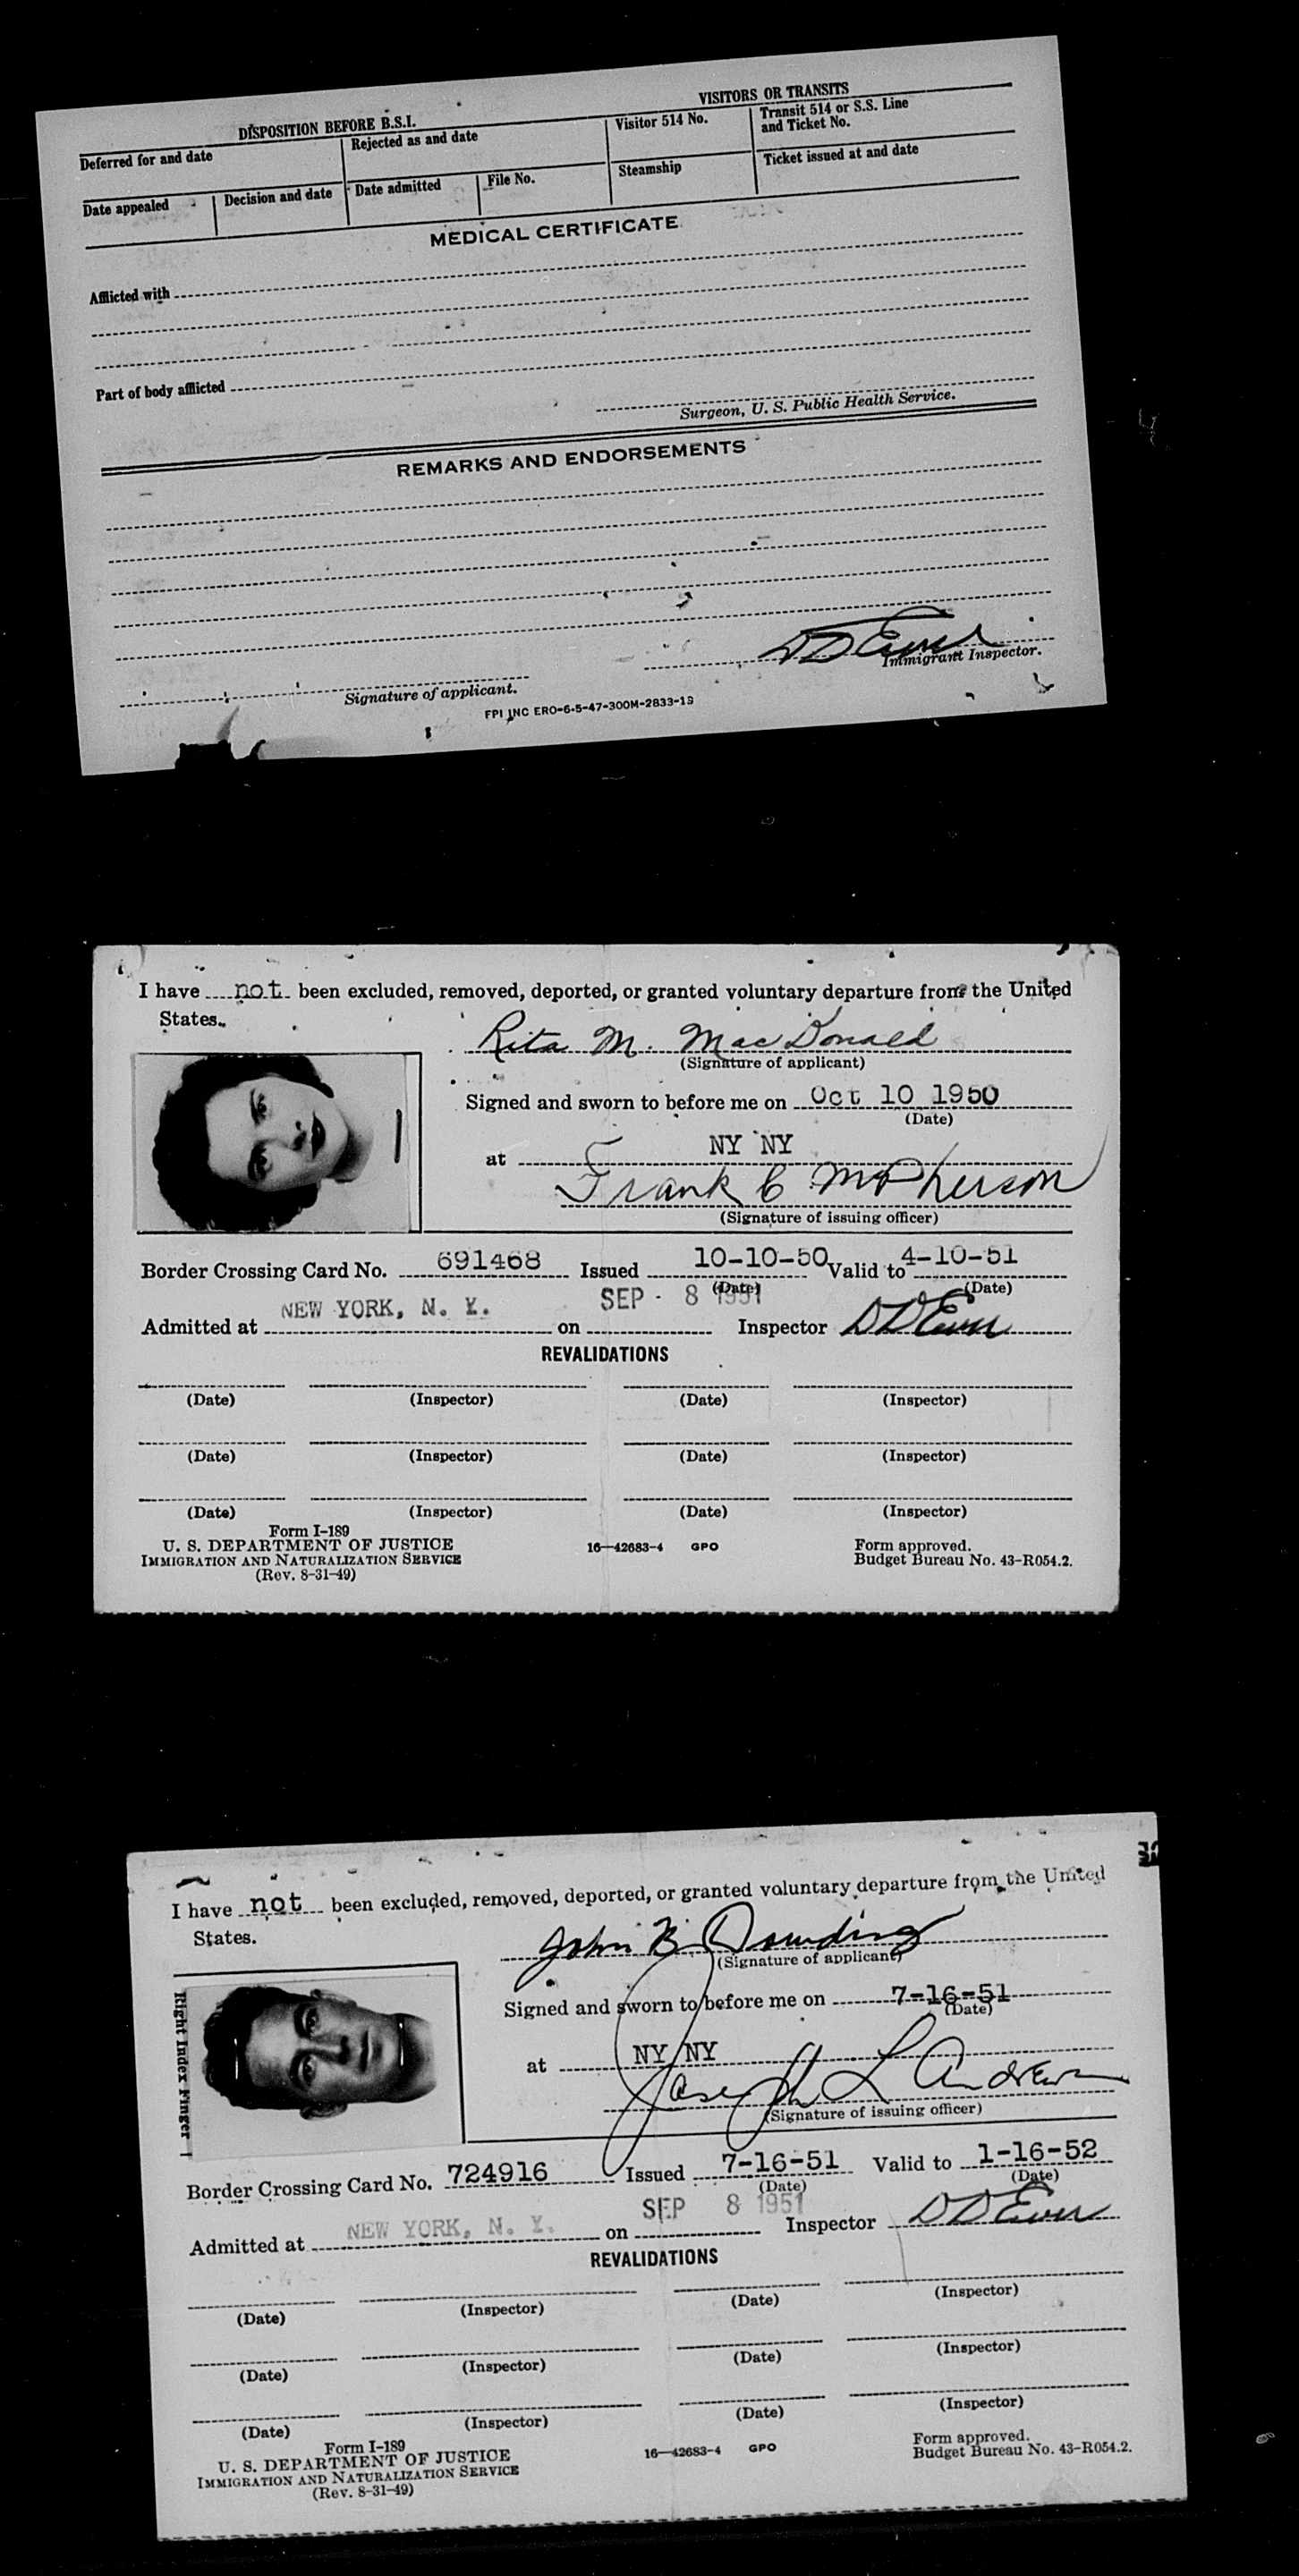 DISPOSITION BEFORE B.S.I.
VISITORS OR TRANSITS
Deferred for and date
Rejected as and date
Visitor 514 No.
Transit 514 or S.S. Line and Ticket No.
Date appealed
Decision and date
Date admitted
File No.
Steamship
Ticket issued at and date
MEDICAL CERTIFICATE
Afflicted with
Part of body afflicted
Surgeon, U. S. Public Health Service.
REMARKS AND ENDORSEMENTS
Immigrant Inspector.
Signature of applicant.
FPI INC ERO-6-5-47-300M-2833-19
I have not been excluded, removed, deported, or granted voluntary departure from the United
States.
Rita M. MacDonald
(Signature of applicant)
Signed and sworn to before me on Oct 10 1950
(Date)
at NY NY
Frank C McPherson
(Signature of issuing officer)
Border Crossing Card No. 691468 Issued 10-10-50 Valid to 4-10-51
(Date) (Date)
Admitted at NEW YORK, N. Y. on SEP - 8 1951 Inspector
REVALIDATIONS
(Date) (Inspector) (Date) (Inspector)
(Date) (Inspector) (Date) (Inspector)
(Date) (Inspector) (Date) (Inspector)
Form I-189
U. S. DEPARTMENT OF JUSTICE
IMMIGRATION AND NATURALIZATION SERVICE
(Rev. 8-31-49)
16—42683-4 GPO
Form approved.
Budget Bureau No. 43-R054.2.
I have not been excluded, removed, deported, or granted voluntary departure from the United
States.
John B. Dowding
(Signature of applicant)
Signed and sworn to before me on 7-16-51
(Date)
at NY NY
Joseph L Andrews
(Signature of issuing officer)
Right Index Finger
Border Crossing Card No. 724916 Issued 7-16-51 Valid to 1-16-52
(Date) (Date)
Admitted at NEW YORK, N. Y. on SEP 8 1951 Inspector
REVALIDATIONS
(Date) (Inspector) (Date) (Inspector)
(Date) (Inspector) (Date) (Inspector)
(Date) (Inspector) (Date) (Inspector)
Form I-189
U. S. DEPARTMENT OF JUSTICE
IMMIGRATION AND NATURALIZATION SERVICE
(Rev. 8-31-49)
16—42683-4 GPO
Form approved.
Budget Bureau No. 43-R054.2.